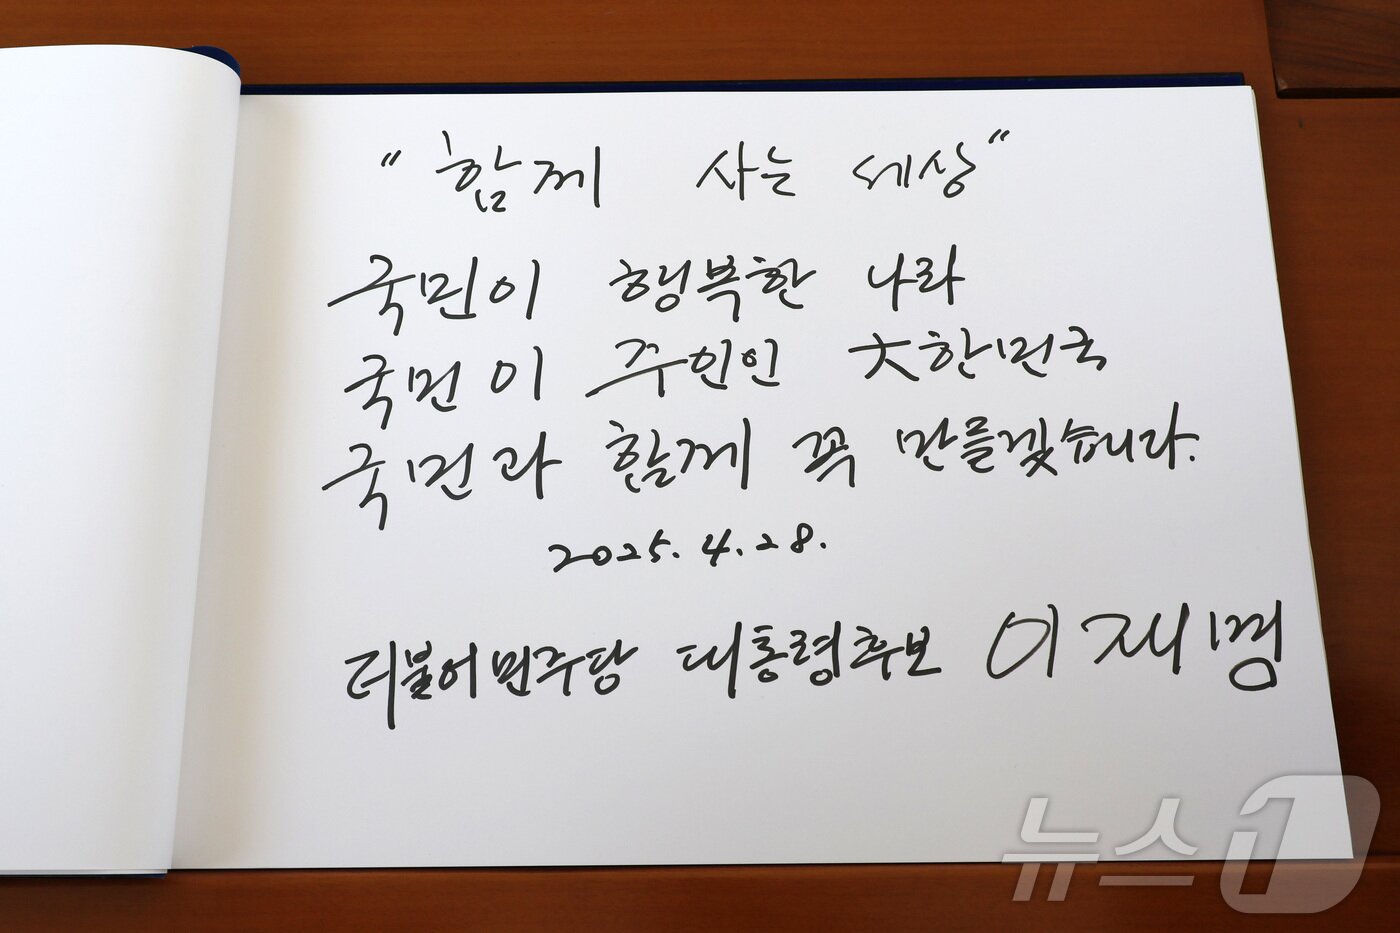 "함께 사는 세상"
국민이 행복한 나라
국민이 주인인 大한민국
국민과 함께 꼭 만들겠습니다.
2025. 4. 28.
더불어민주당 대통령후보 이재명
뉴스1